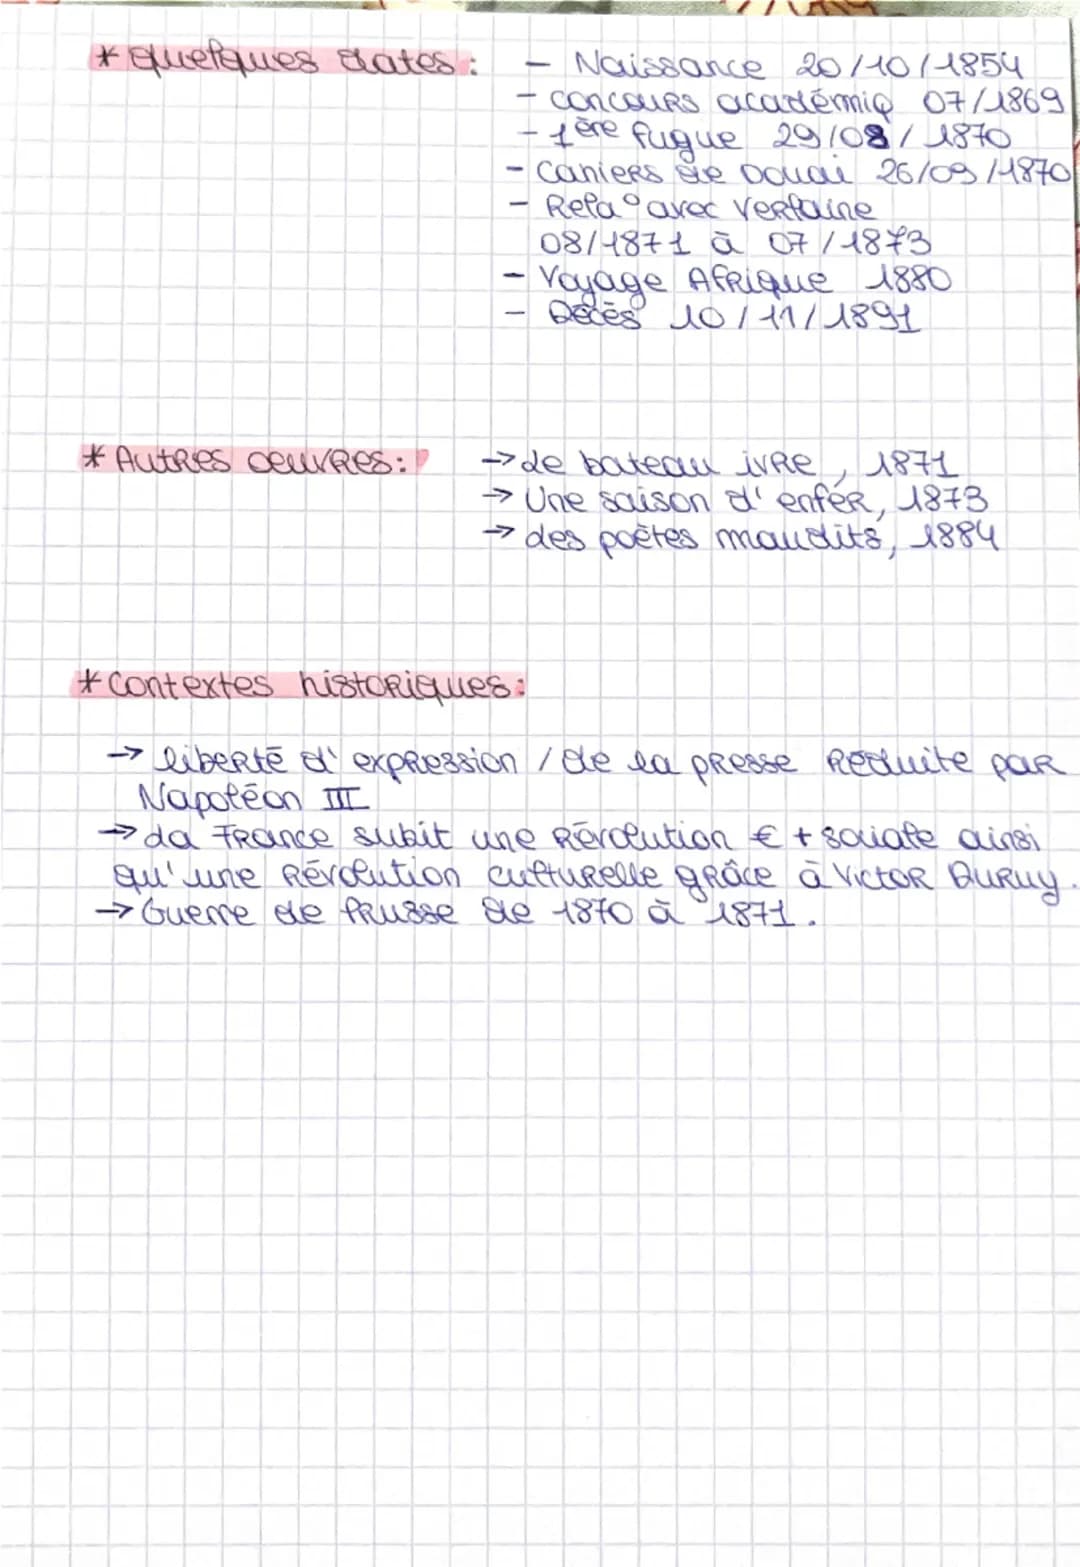 * Quelques dates : - Naissance 20/10/1854
- concours académiq 07/1869
- 1ère fugue 29/08/1870
- Cahiers de Douai 26/09/1870
- Rela° avec Verlaine
08/1871 à 07/1873
- Voyage Afrique 1880
- Décès 10/11/1891
* Autres œuvres : → Le bateau ivre, 1871
→ Une saison d'enfer, 1873
→ Les poètes maudits, 1884
* Contextes historiques :
→ liberté d'expression / de la presse réduite par
Napoléon III
→ La France subit une Révolution € + sociale ainsi
qu'une Révolution culturelle grâce à Victor Duruy.
→ Guerre de Prusse de 1870 à 1871.